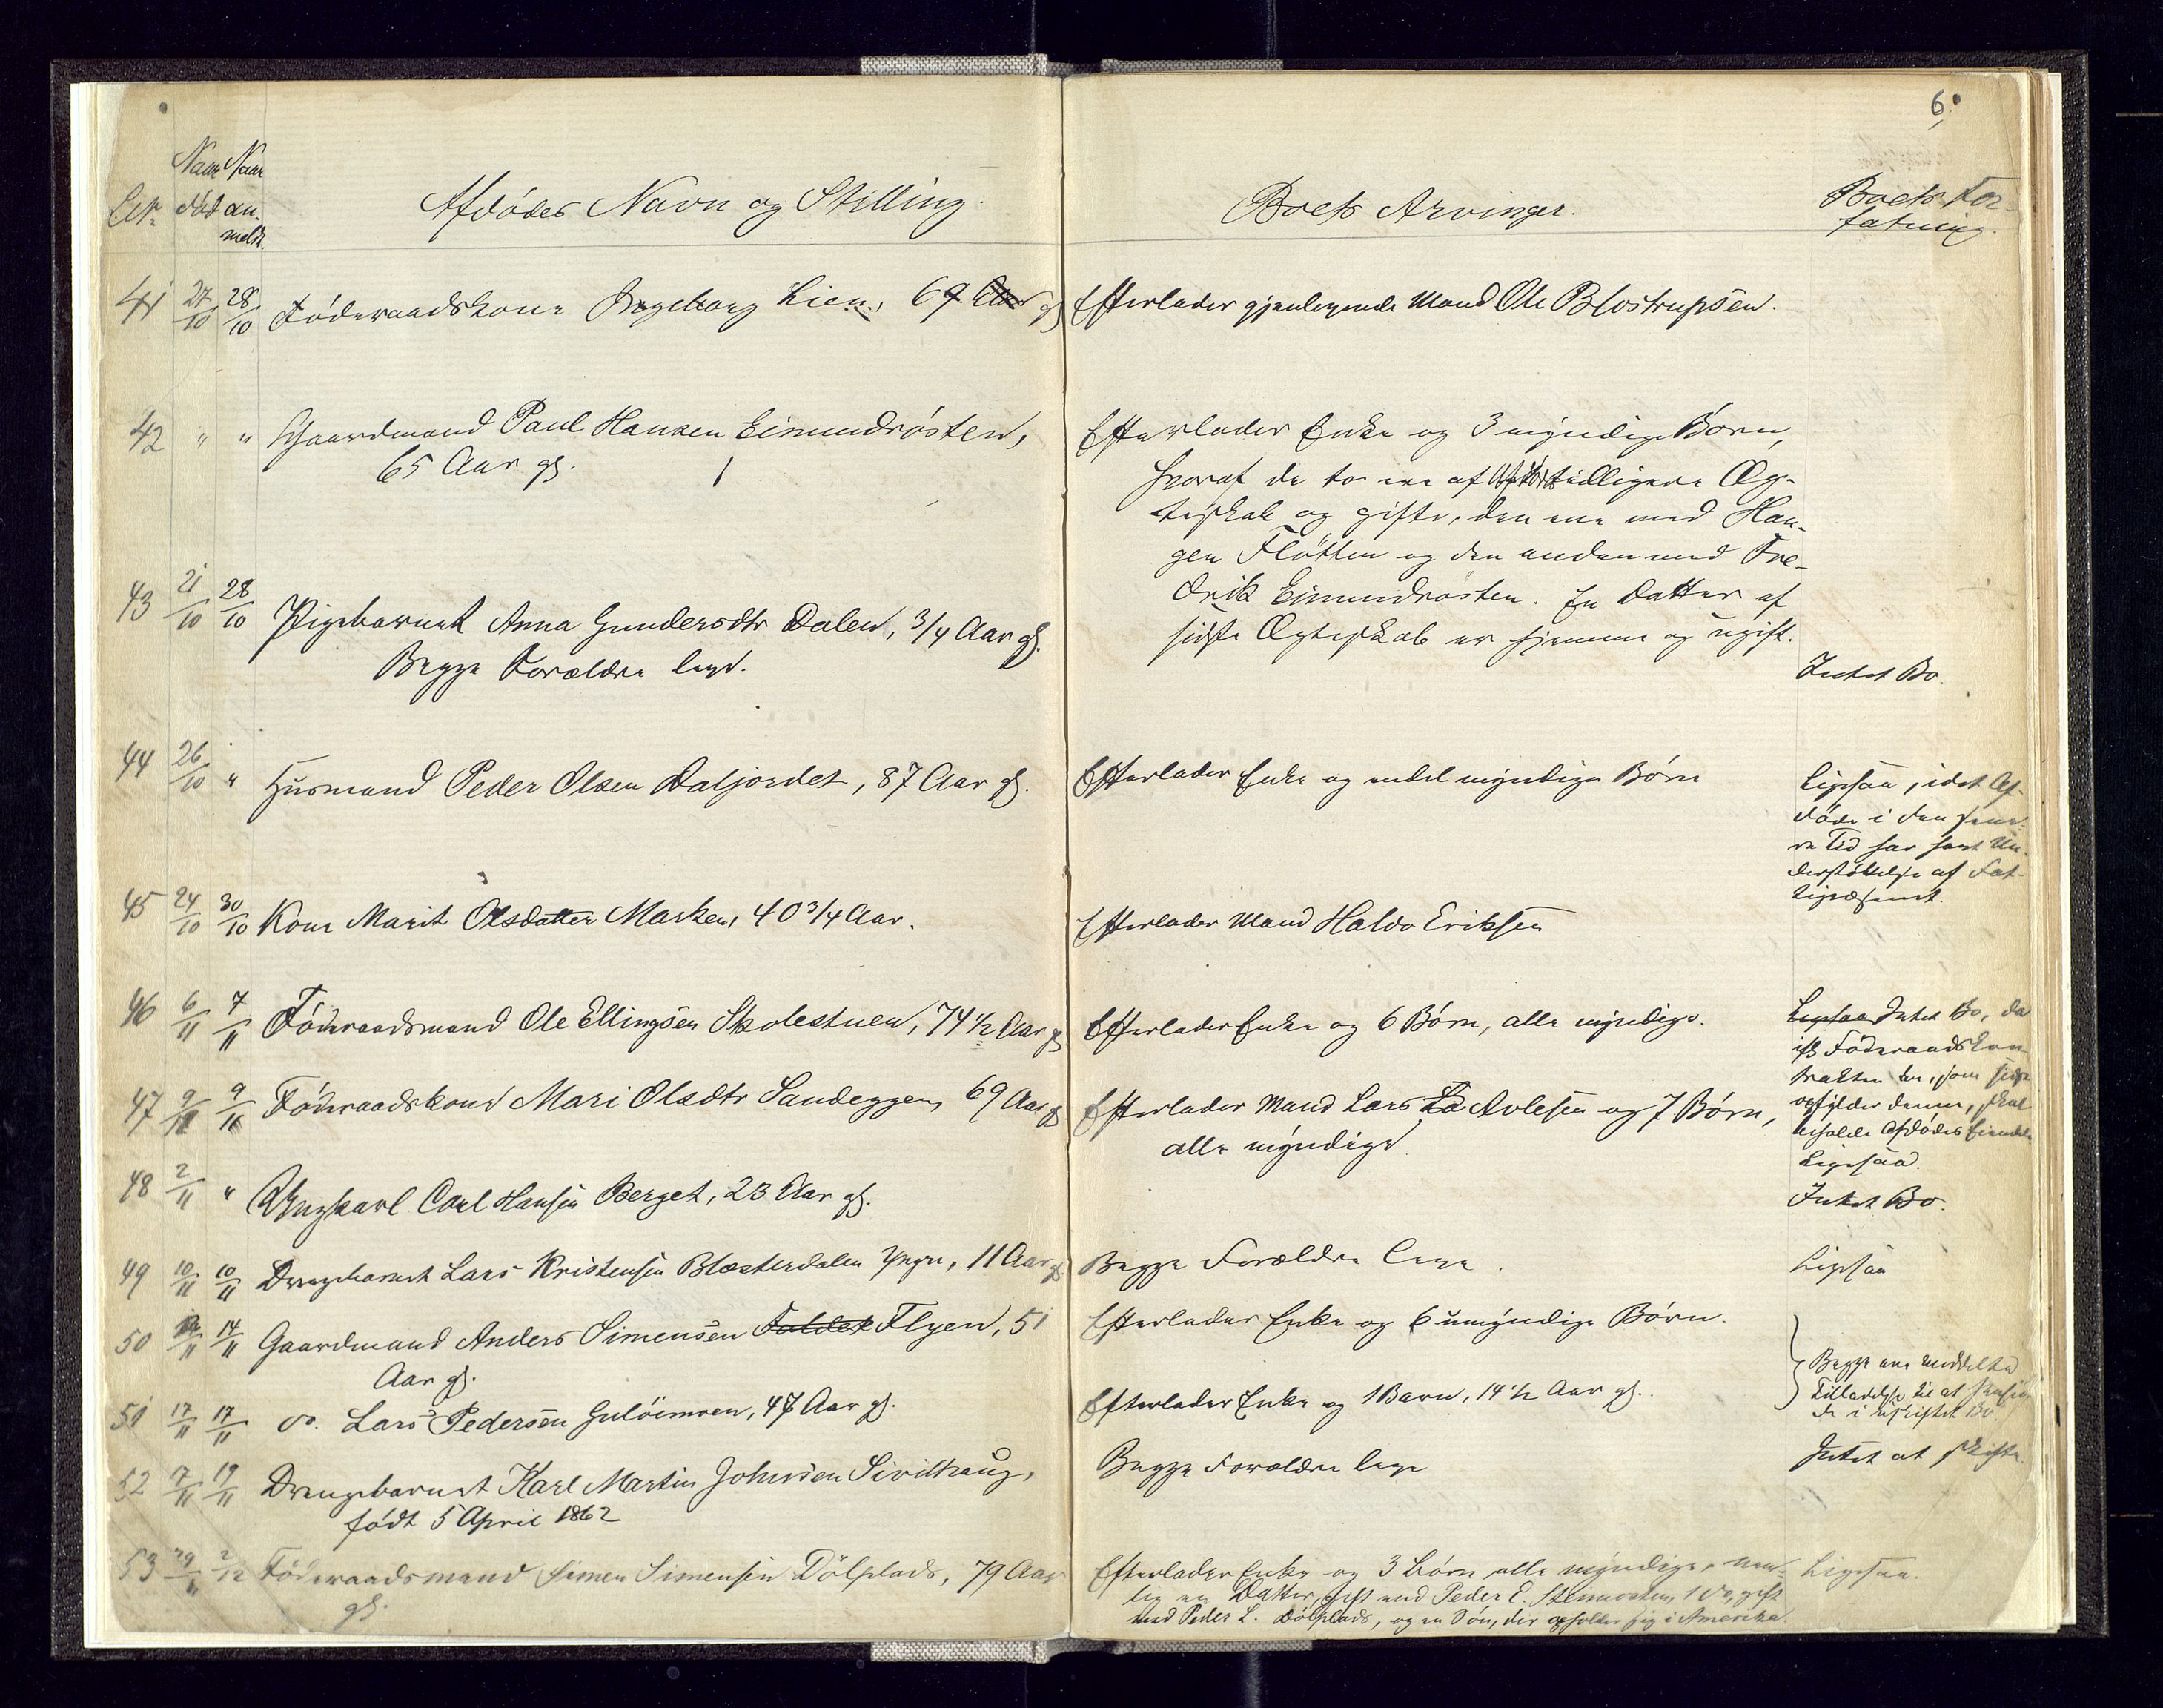 6.
Naar Naar
død an-
meldt.
Afdødes Navn og Stilling.
Boets Arvinger.
Boets For-
fatning.
41 27/10 28/10 Föderaadskone Ingeborg Lien, 69 Aar gl.
Efterlader gjenlevende Mand Ole Blostrupsen.
42 " " Gaardmand Paul Hansen Eimundrösten,
65 Aar gl.
Efterlader Enke og 3 myndige Börn,
hvoraf de to ere af tidligere Æg-
teskab og gifte, den ene med Hau-
gen Flötten og den anden med Fre-
drik Eimundrösten. En Datter af
sidste Ægteskab er hjemme og ugift.
43 21/10 28/10 Pigebarnet Anna Gundersdtr Dalen, 3/4 Aar gl.
Begge Forældre leve.
Intet Bo.
44 26/10 " Husmand Peder Olsen Daljordet, 87 Aar gl.
Efterlader Enke og endel myndige Börn
Ligesaa, idet Af-
døde i den sene-
re Tid har havt Un-
derstöttelse af Fat-
tigvæsenet.
45 24/10 30/10 Kone Marit Olsdatter Marken, 40 3/4 Aar.
Efterlader Mand Haldo Eriksen
46 6/11 7/11 Föderaadsmand Ole Ellingsen Skolestuen, 74 1/2 Aar gl
Efterlader Enke og 6 Börn, alle myndige.
Ligesaa Intet Bo, da
Föderaadskon-
trakten som
opfylder denne, skal
beholde Afdødes Eiendele
47 9/11 9/11 Föderaadskone Mari Olsdtr Sandeggen, 69 Aar gl
Efterlader Mand Lars Avlesen og 7 Börn,
alle myndige
Ligesaa.
48 2/11 " Ungkarl Carl Hansen Berget, 23 Aar gl.
Intet Bo.
49 10/11 10/11 Drengebarnet Lars Kristensen Blæsterdalen yngre, 11 Aar gl
Begge Forældre leve.
Ligesaa
50 14/11 Gaardmand Anders Simensen Foldet Flyen, 51
Aar gl.
Efterlader Enke og 6 umyndige Börn.
Begge ere meddelte
Tilladelse til at hensid-
de i uskiftet Bo.
51 17/11 17/11 do. Lars Pedersen Gulöimoen, 47 Aar gl.
Efterlader Enke og 1 Barn, 14 1/2 Aar gl.
52 17/11 19/11 Drengebarnet Karl Martin Johnsen Sivilhaug,
födt 5 April 1862
Begge Forældre leve
Intet at skifte
53 29/11 2/12 Föderaadsmand Simen Simensen Dölplads, 79 Aar
gl.
Efterlader Enke og 3 Börn alle myndige, nem-
lig en Datter, gift med Peder E. Steimosten, 1 do, gift
med Peder L. Dölplads, og en Sön, der opholder sig i Amerika.
Ligesaa.